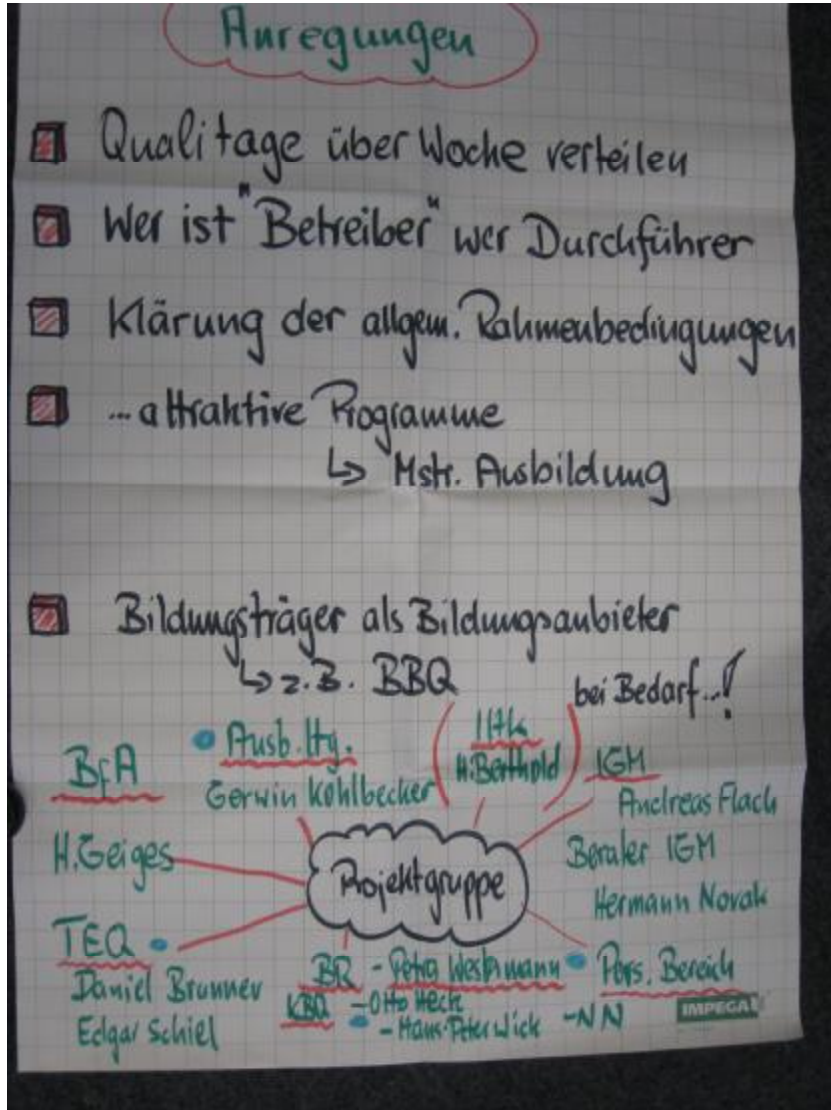 Anregungen
Qualitage über Woche verteilen
Wer ist "Betreiber" wer Durchführer
Klärung der allgem. Rahmenbedingungen
...attraktive Programme
↳ Mstr. Ausbildung
Bildungsträger als Bildungsanbieter
↳ z.B. BBQ
bei Bedarf...!
BfA
H. Geiges
Ausb. ltg.
Gerwin Kohlbecker
IHK
H. Berthold
IGM
Andreas Flach
Berater IGM
Hermann Novak
Projektgruppe
TEQ
Daniel Brunner
Edgar Schiel
BR - Petra Westermann
KBQ - Otto Heck
- Hans-Peter Wick
Pers. Bereich
- NN
IMPEGA